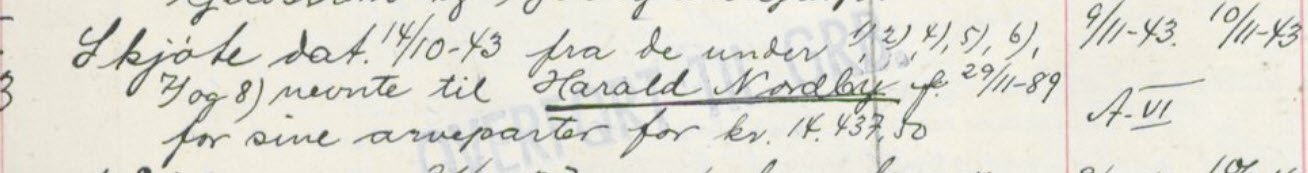 Skjöte dat. 14/10-43 fra de under 1), 2), 4), 5), 6), 9/11-43. 10/11-43
7) og 8) nevnte til Harald Nordby f. 29/11-89 A-VI
for sine arveparter for kr. 14.437,50